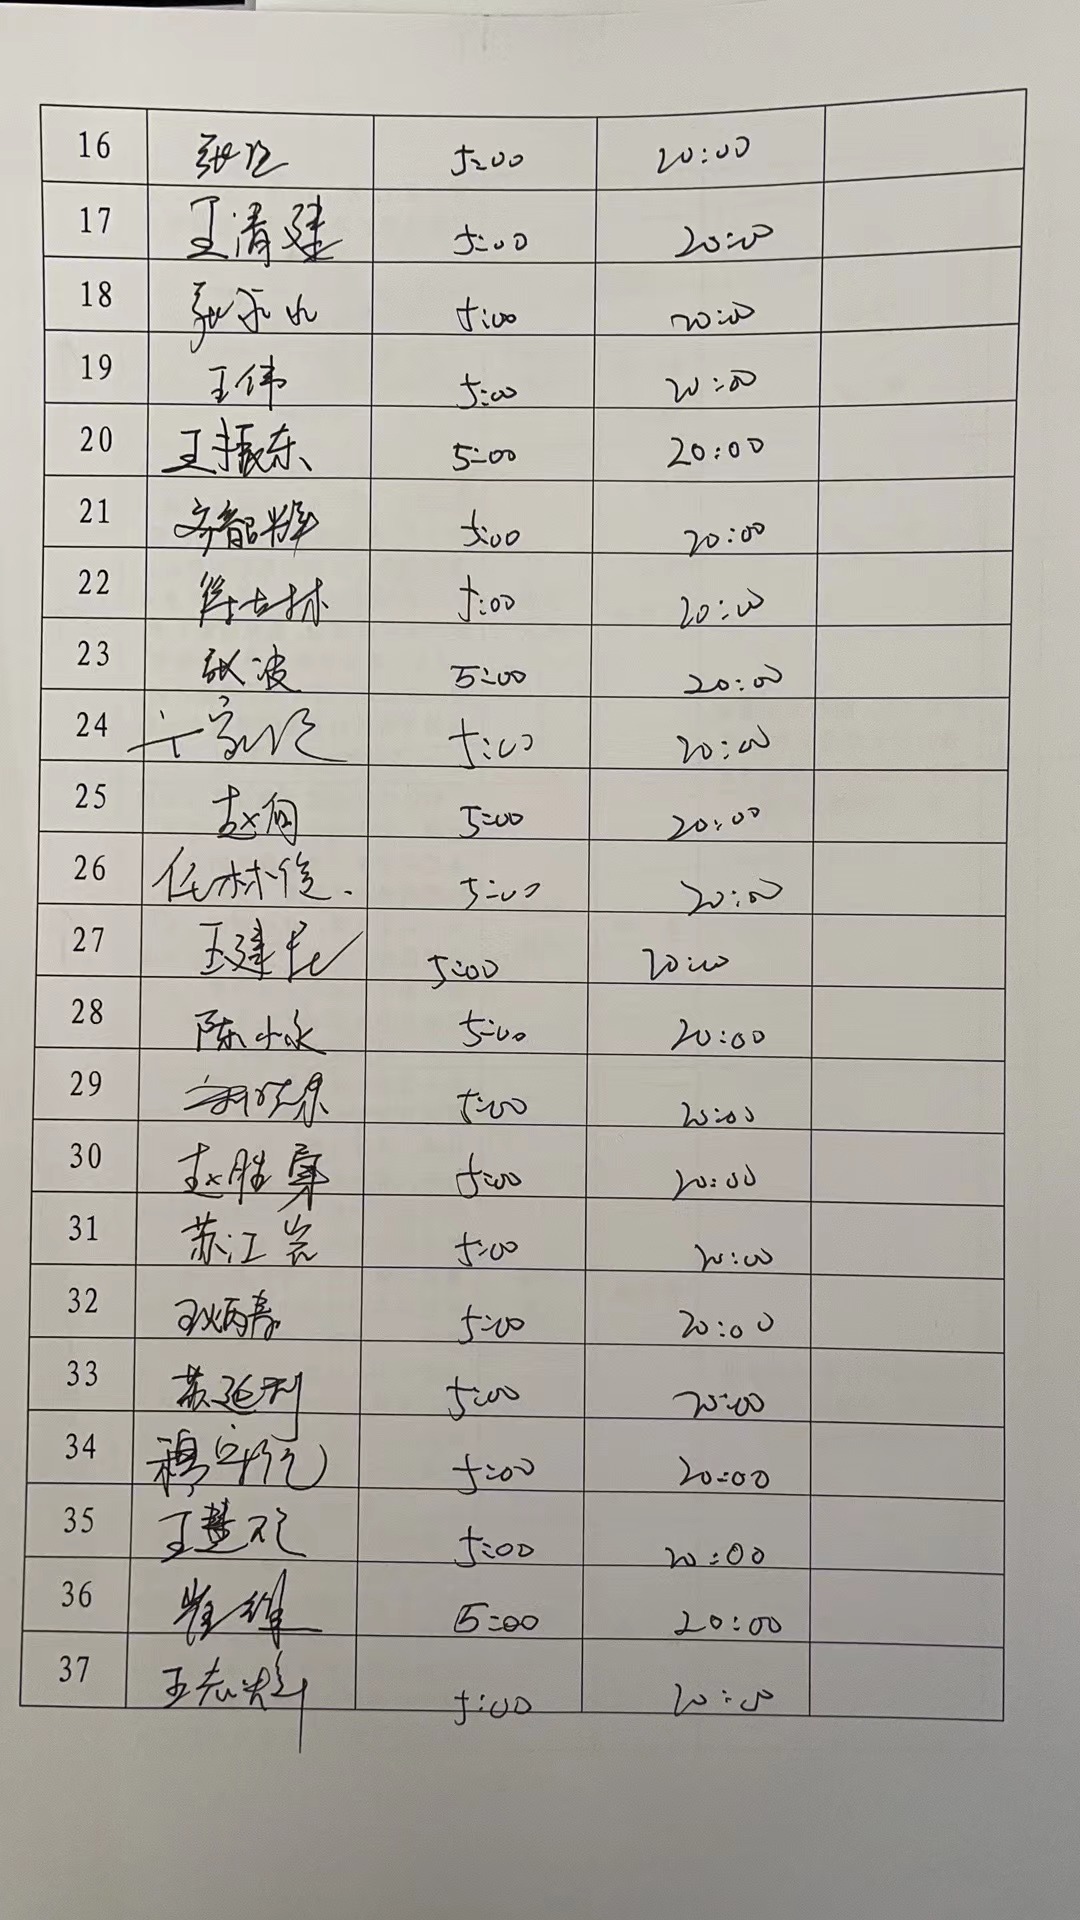 16 5:00 20:00
17 王清建 5:00 20:00
18 张永山 5:00 20:00
19 王伟 5:00 20:00
20 王振东 5:00 20:00
21 齐韶辉 5:00 20:00
22 5:00 20:00
23 张波 5:00 20:00
24 5:00 20:00
25 赵向 5:00 20:00
26 任林俊 5:00 20:00
27 王建民 5:00 20:00
28 陈小永 5:00 20:00
29 5:00 20:00
30 赵胜军 5:00 20:00
31 苏江岩 5:00 20:00
32 5:00 20:00
33 苏延利 5:00 20:00
34 5:00 20:00
35 王楚 5:00 20:00
36 崔维 5:00 20:00
37 王志辉 5:00 20:00